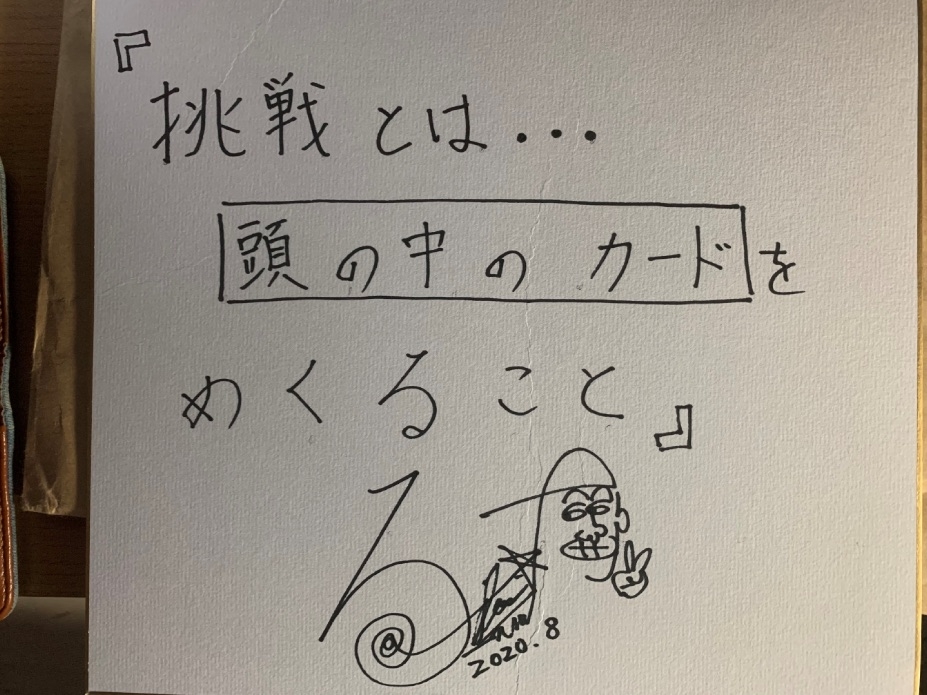 『
挑戦とは...
頭の中のカードを
めくること』
2020.8